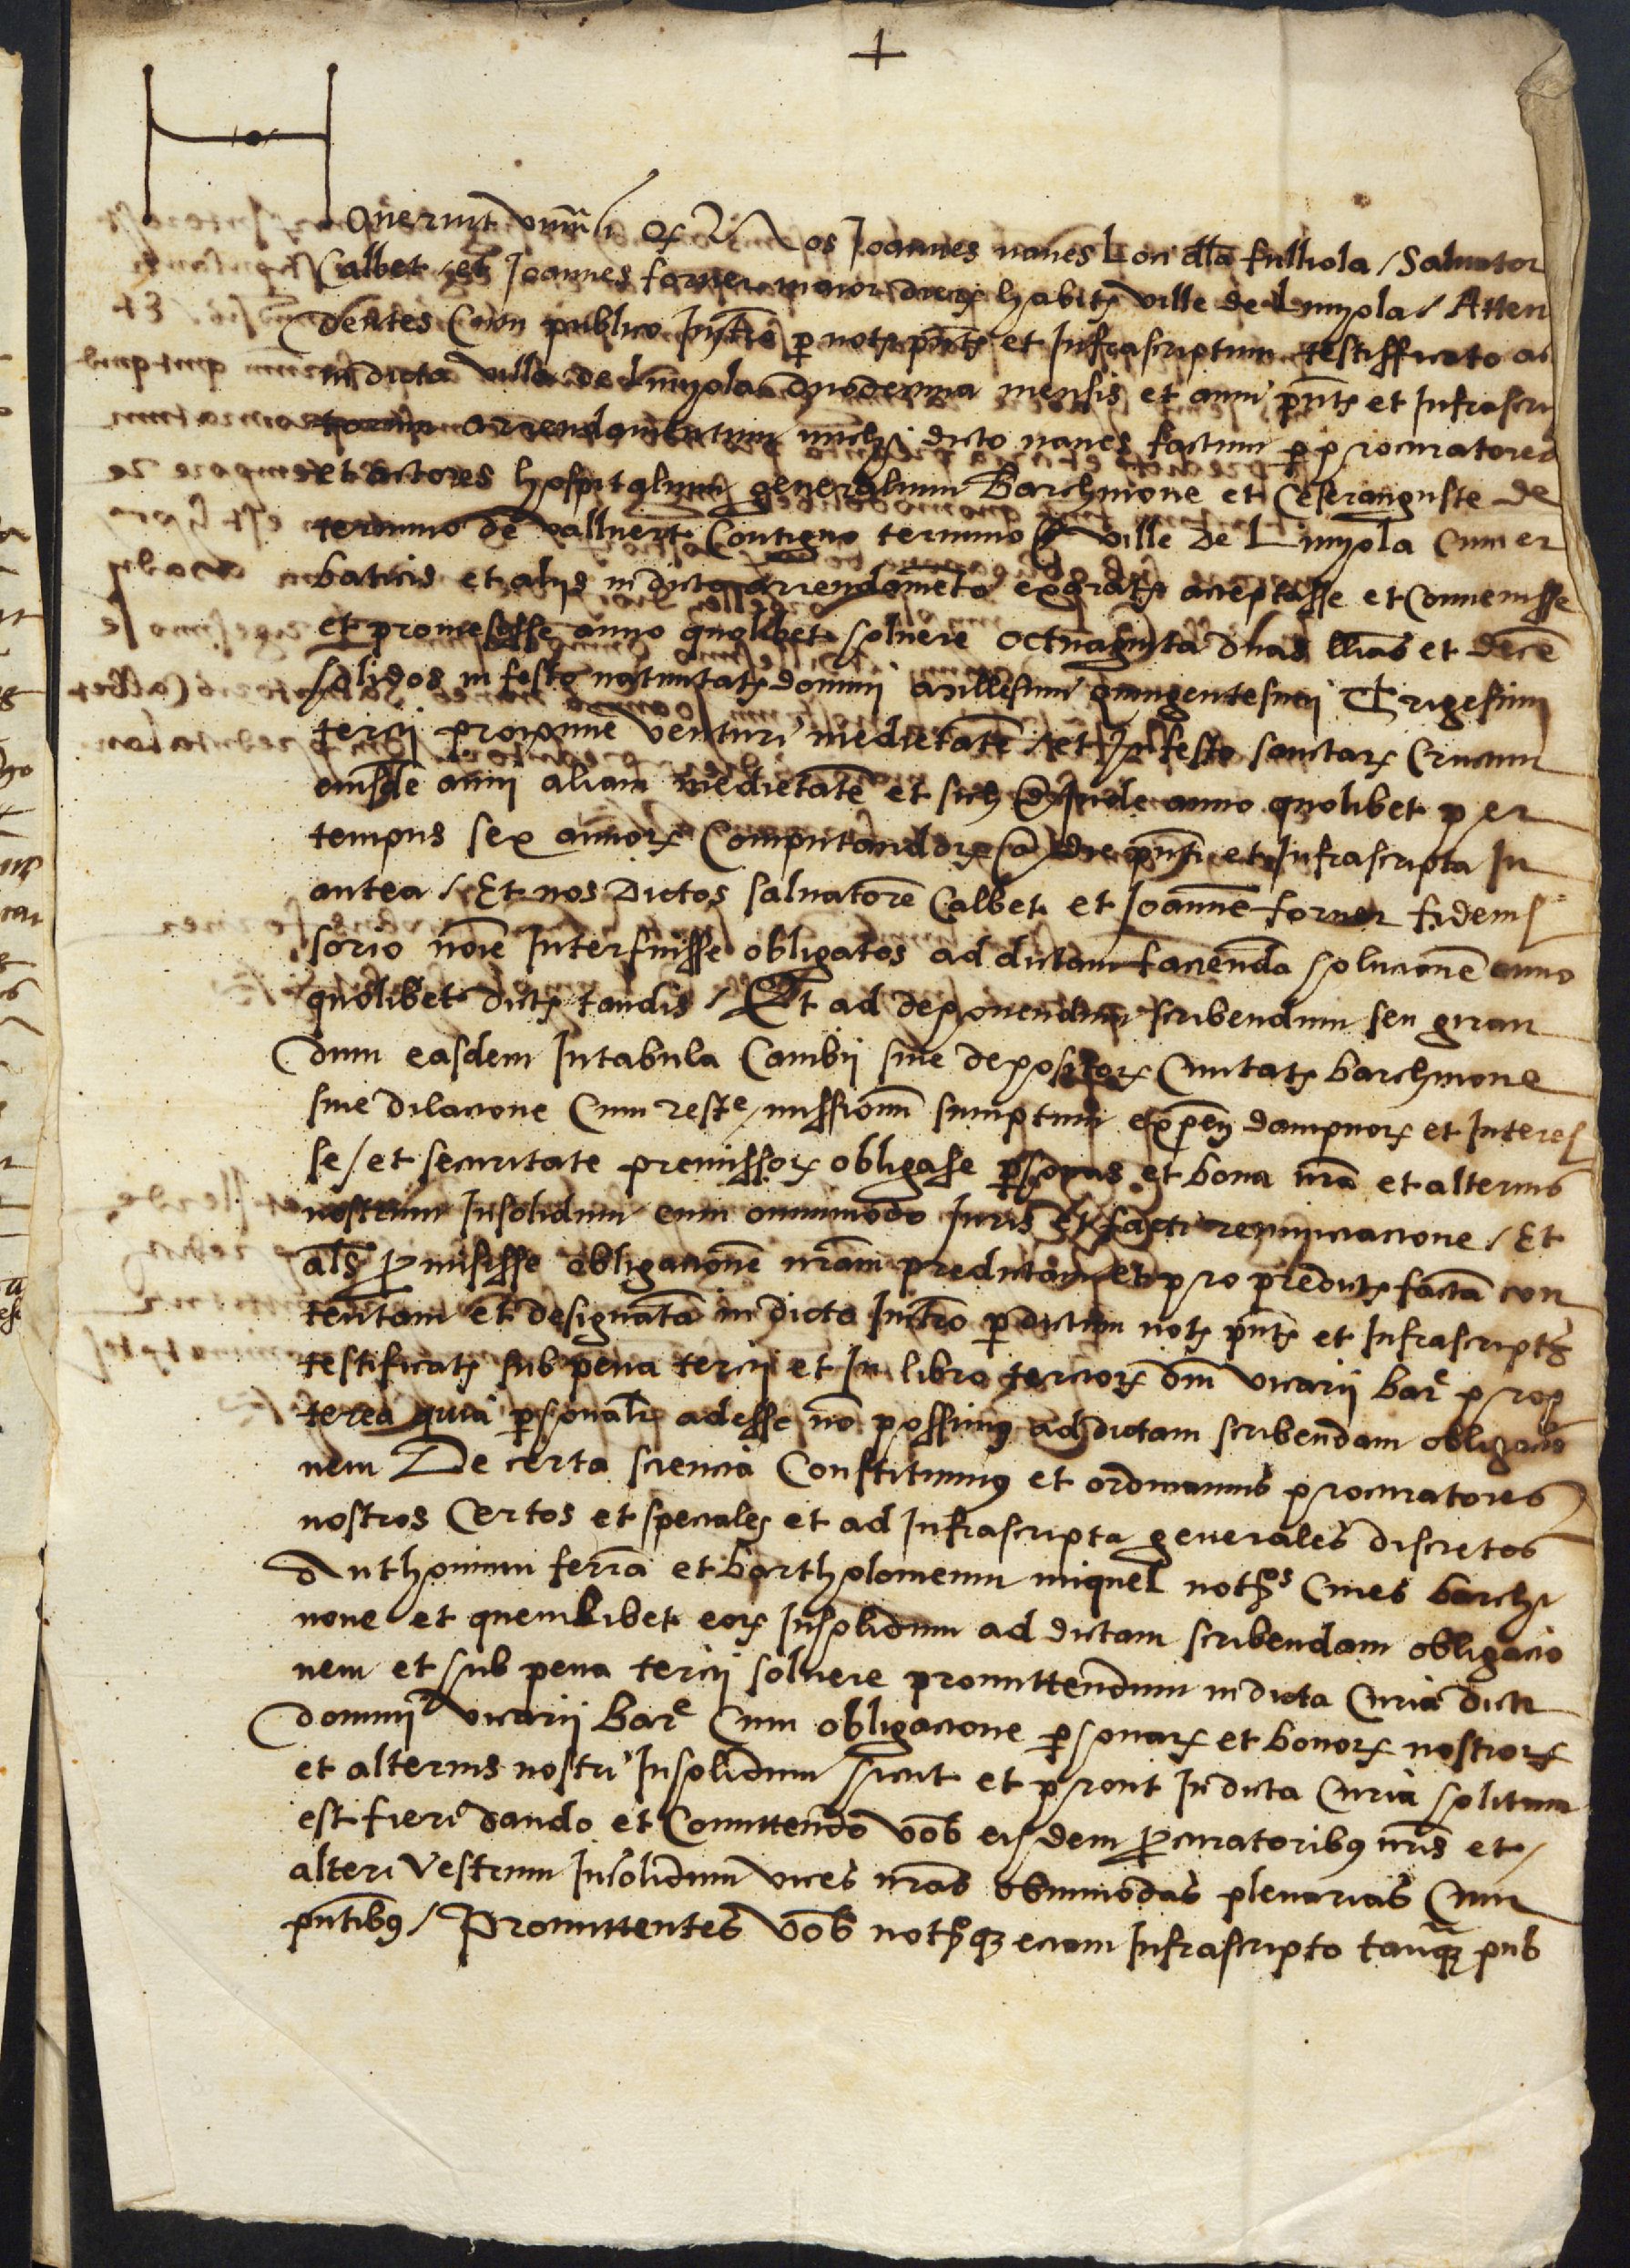 +
Noverint univ̄si qꝫ Nos Joannes naves Loci dla fulliola / Salvator
Calbet et Joannes forner maior dierꝝ habitꝭ ville de Linyola / Atten
dentes Cum publico Instr̄o per notꝭ pn̄tꝭ et Infrascriptum testifficato ac
in dicta villa de Linyola duodecima mensis et anni pn̄tꝭ et Infrascri
arrendamentum michi dicto naves factum per procuratores
et actores hospitalium generalium Barchinone et Cesarauguste de
termino de vallvert Contiguo termino ville de Linyola Cum er
baticis et alijs in dicto arrendam̄eto exp̄ratꝭ acceptasse et Convenisse
et promesisse anno quolibet solvere octuaginta duas llīas et decē
solidos in festo nativitatꝭ domini millesimi quingentesimi Trigesimi
tercij proxime venturi medietatē et In festo sanctarꝝ Crucum
eiusdē anni aliam medietatē et sich deinde anno quolibet per
tempus sex annorꝝ Computandorꝝ a die pn̄ti et Infrascripta In
antea / Et nos Dictos salvatorē Calbet et Joannē forner fideius
sorio noīe Interfuisse obligatos ad dictam faciendā solucionē anno
quolibet dictꝭ tandis / Et ad deponendum scribendum seu giran
dum easdem In tabula Cambij sive depositorꝝ Civitatꝭ barchinone
sine dilacione Cum restᵉ / missionū sumptuū expēn̄ dampnorꝝ et Interes
se / et securitate premissorꝝ obligasse p̱sonas et bona nrā et alterius
nostrum Insolidum cum omnimodo Juris et facti renunciacione / Et
als p̱misisse obligacionē nrām predictam et pro predictꝭ factā con
tentam et designatā in dicto Instr̄o per dictum notꝭ pn̄tꝭ et Infrascriptꝭ
testificatꝭ sub pena tercij et In libro terciorꝝ dn̄i vicarij Barᵉ prop
terea quia p̱sonalr̄ adesse nō possimꝰ ad dictam scribendam obligacio
nem De certa sciencia Constituimꝰ et ordinamus procuratores
nostros Certos et speciales et ad Infrascripta generales discretos
Anthonium ferrā et bartholomeum miquel notꝭos Cives barchi
none et quemlibet eorꝝ Insolidum ad dictam scribendam obligacio
nem et sub pena tercij solvere promittendum in dicta Curia dicti
domini vicarij Barᵉ Cum obligacione p̱sonarꝝ et bonorꝝ nostrorꝝ
et alterius nostri Insolidum sicut et prout In dicta Curia solitum
est fieri dando et Comittendo vob̄ eisdem p̱curatoribꝰ nrīs et /
alteri vestrum Insolidum vices nrās omnimodas plenarias Cum
pn̄tibꝰ / Promittentes vob̄ notꝭ qꝫ eciam Infrascripto tanqꝫ pub